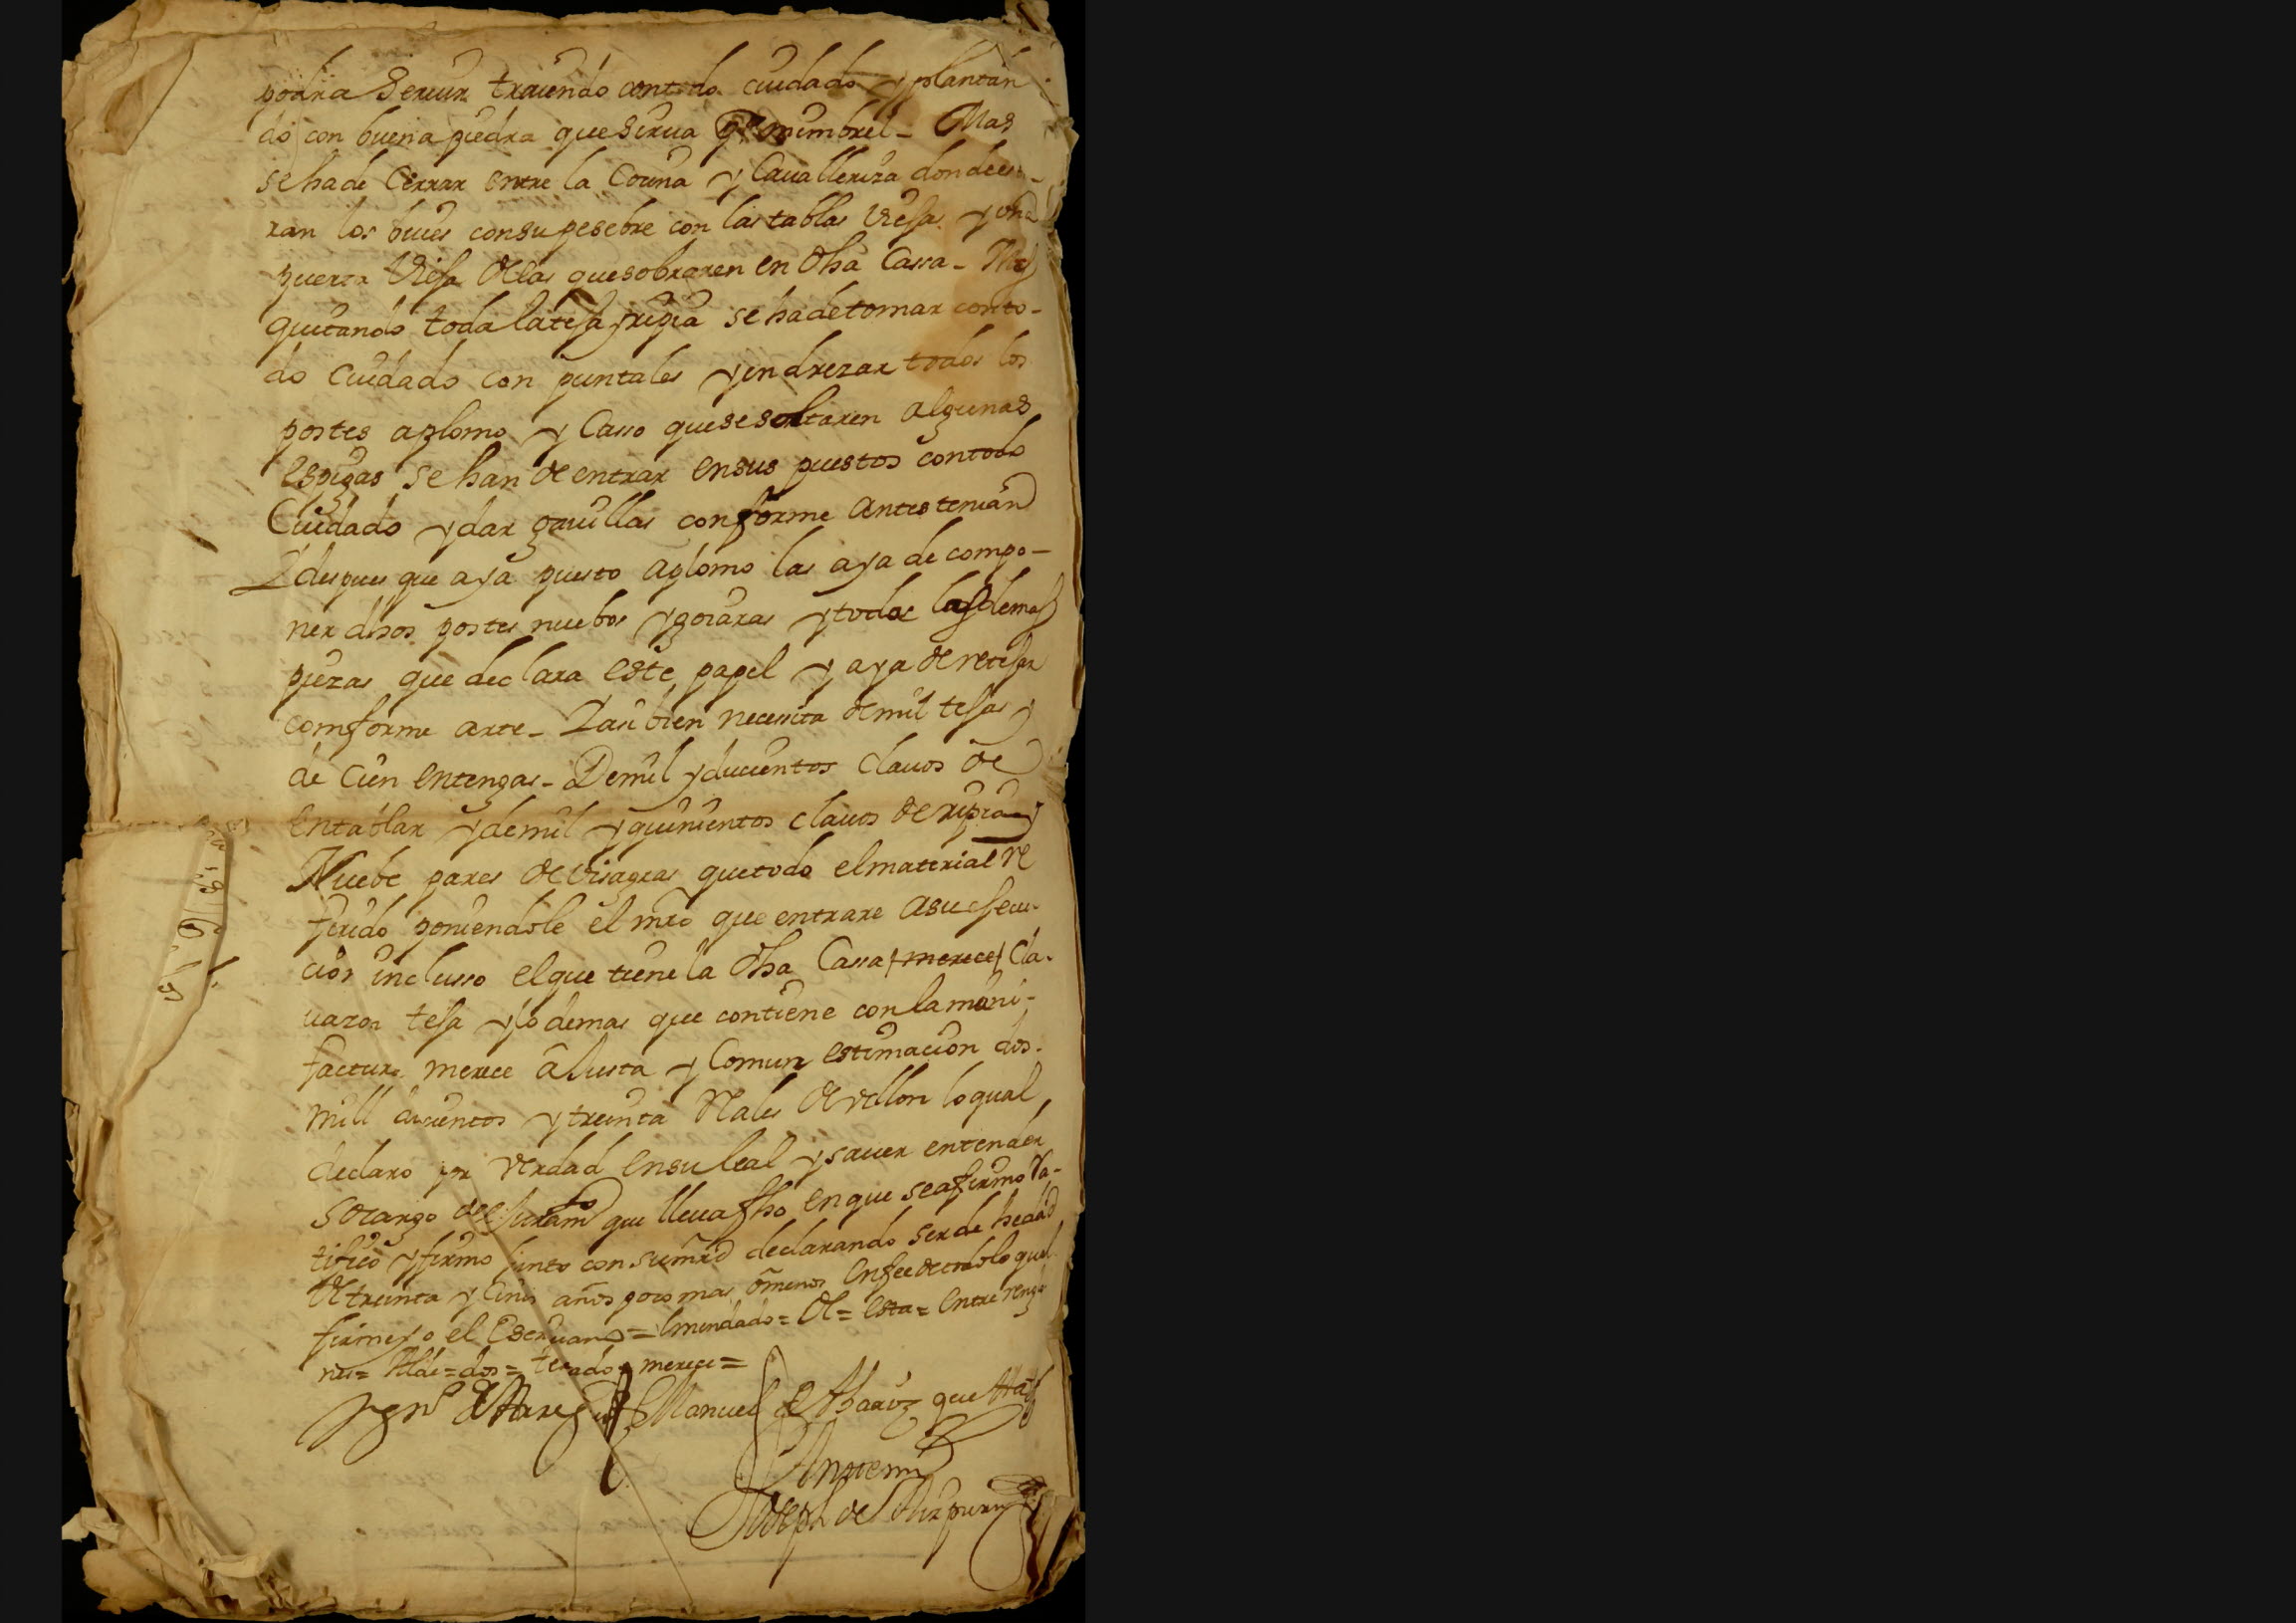 podra Seruir traiendo con todo cuidado y plantan
do con buena piedra que Sirua pr mimbrel - Mas
se ha de Cerrar entre la Cocina y Cavalleriza donde es-
ran los bues con su pesebre con las tablas viejas y una
puerta Vieja de las que sobraren en dha Cassa - Mas
quitando toda la teja y ripia se ha de tomar con to-
do Cuidado con puntales y endrezar todos los
postes a plomo y Casso que se soltaren algunas
espigas se han de entrar en sus puestos con todo
Cuidado y dar gauillas conforme antes tenian
Y despues que aya puesto a plomo las aya de compo-
ner dhos postes nuebos y goiaras y todas las demas
piezas que declara este papel y aya de retejar
comforme arte - Y asi bien necesita de mil tejas y
de Cien entengas - De mil y ducientos clauos de
entablar y de mil y quinientos clauos de ripia y
Nuebe pares de visagras que todo el material re
ferido poniendole el mro que entrare a su ejecu-
cion inclusso el que tiene la dha Cassa merece Cla-
uazon teja y lo demas que contiene con la mani-
factura merece a Justa y Comun estimacion dos
mill ducientos y treinta Reales de vellon lo qual
declaro por verdad en su leal y sauer entender
so cargo del Juramto que lleua fho en que se afirmo Ra-
tifico y firmo junto con su mrd declarando ser de hedad
de treinta y Cinco años poco mas o menos en fee de todo lo qual
firme yo el Escriuano = enmendado = de = esta = Entre renglo
nes = = dos = testado = merece =
Manuel de
Ante mi
Joseph de